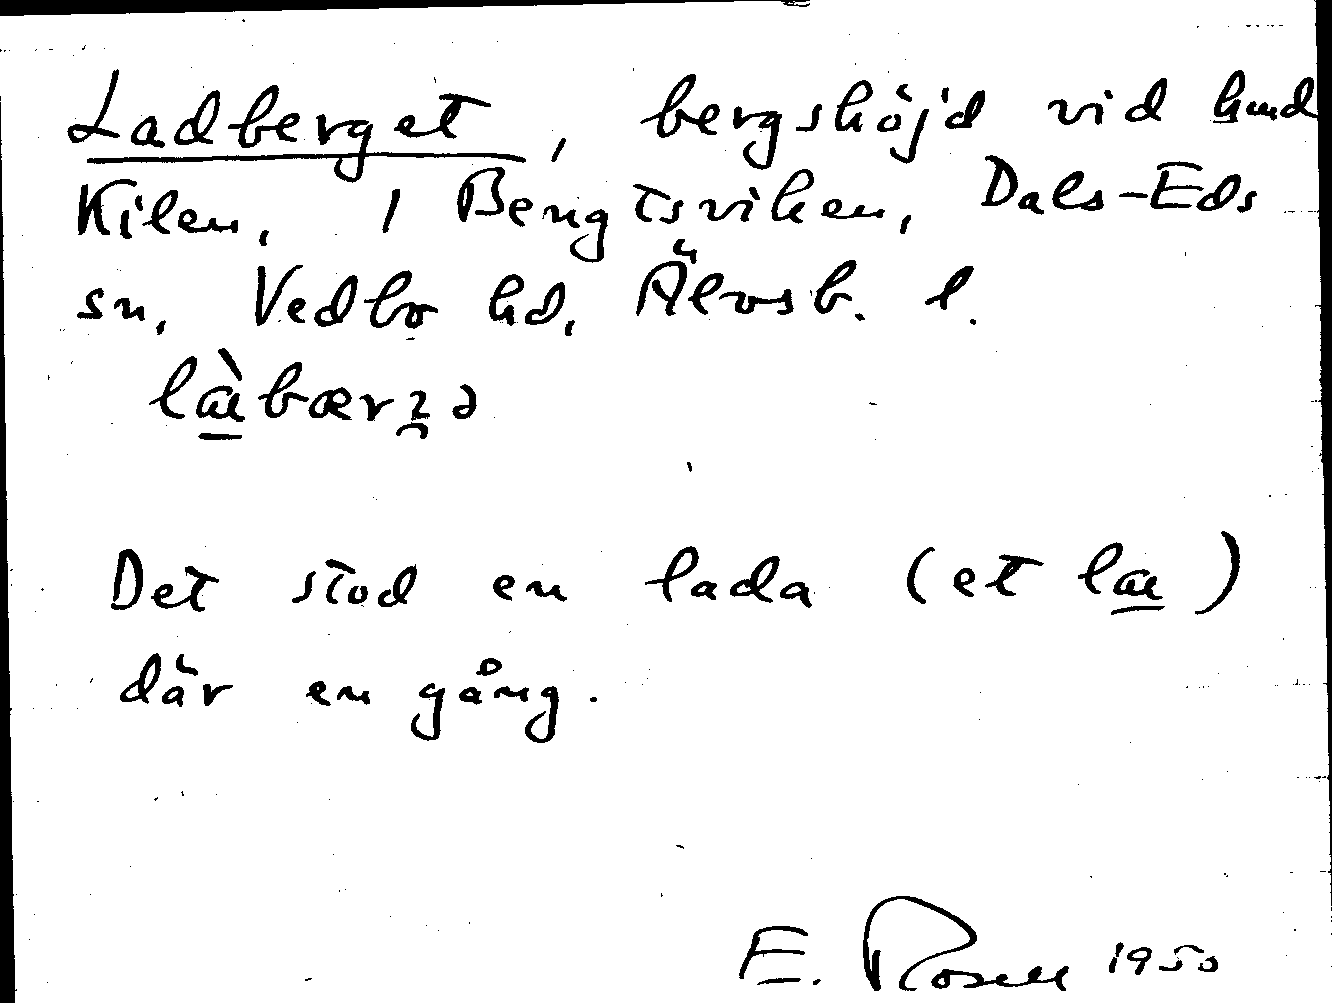 Ladberget, bergshöjd vid hmd
Kilen, 1 Bengtsviken, Dals-Eds
sn, Vedbo hd, Älvsb. l.
Det stod en lada (et la)
där en gång.
E. Rosell 1950